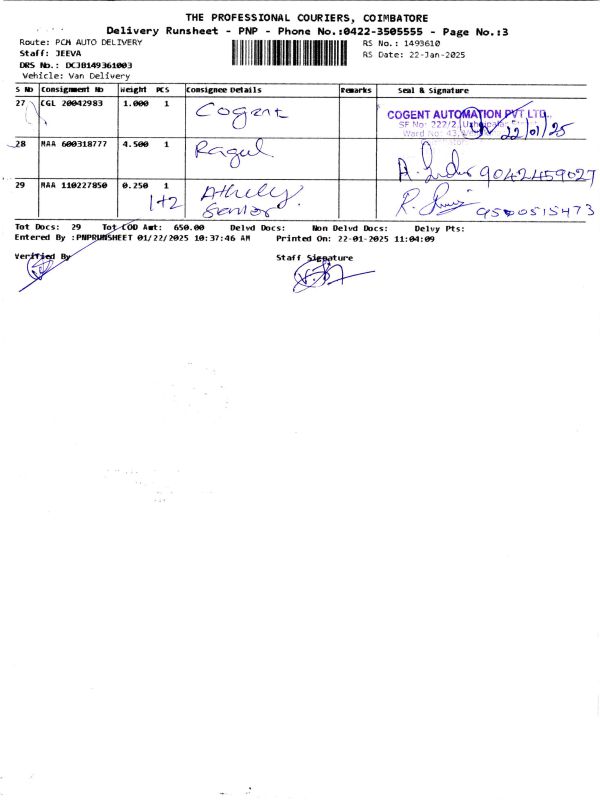 THE PROFESSIONAL COURIERS, COIMBATORE
Delivery Runsheet - PNP - Phone No.:0422-3505555 - Page No.:3
Route: PCM AUTO DELIVERY RS No.: 1493610
Staff: JEEVA RS Date: 22-Jan-2025
DRS No.: DCJB149361003
Vehicle: Van Delivery
S No Consignment No Weight PCS Consignee Details Remarks Seal & Signature
27 CGL 20042983 1.000 1 Cogent COGENT AUTOMATION PVT LTD.,
SF No: 222/2
Ward No: 43, 22/01/25
28 MAA 600318777 4.500 1 Ragul 9042459027
29 MAA 110227850 0.250 1
1+2 Senior 9500515473
Tot Docs: 29 Tot COD Amt: 650.00 Delvd Docs: Non Delvd Docs: Delvy Pts:
Entered By :PNPRUNSHEET 01/22/2025 10:37:46 AM Printed On: 22-01-2025 11:04:09
Verified By Staff Signature